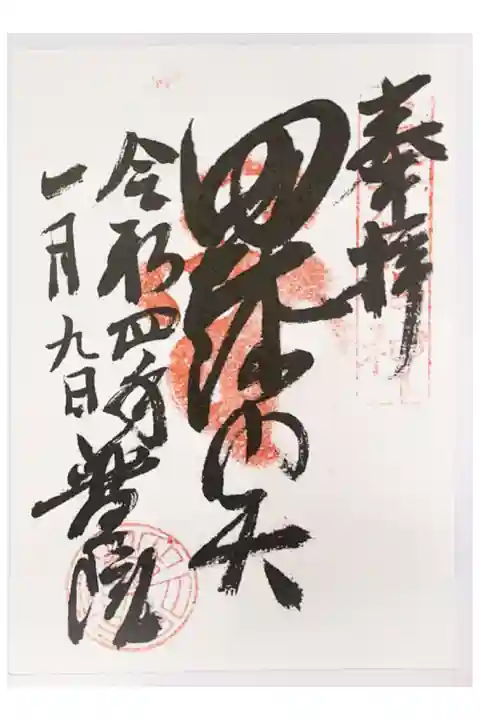 奉拝
毘沙門天
令和四年
一月九日
院